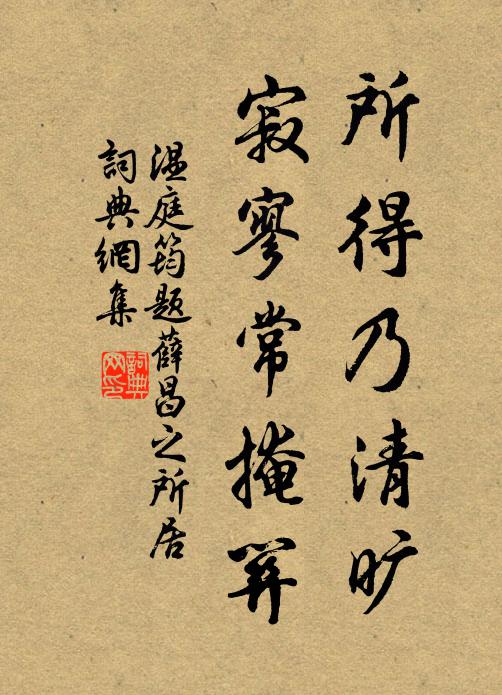 所得乃清旷
寂寥常掩關
温庭筠题薛昌之所居
詞典網集
詞典
网印